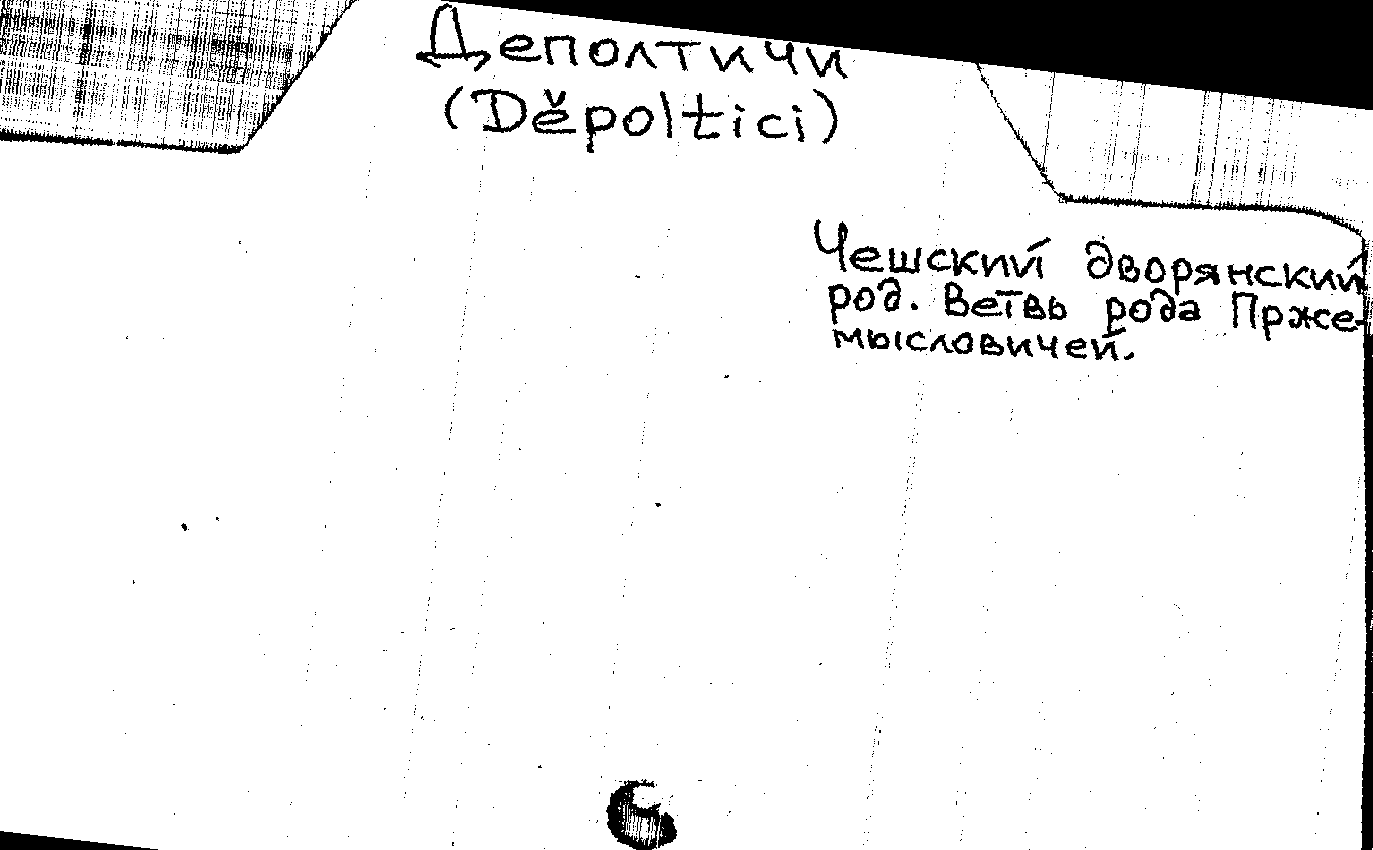 Деполтичи
(Děpoltici)
Чешский дворянский
род. Ветвь рода Прже-
мысловичей.